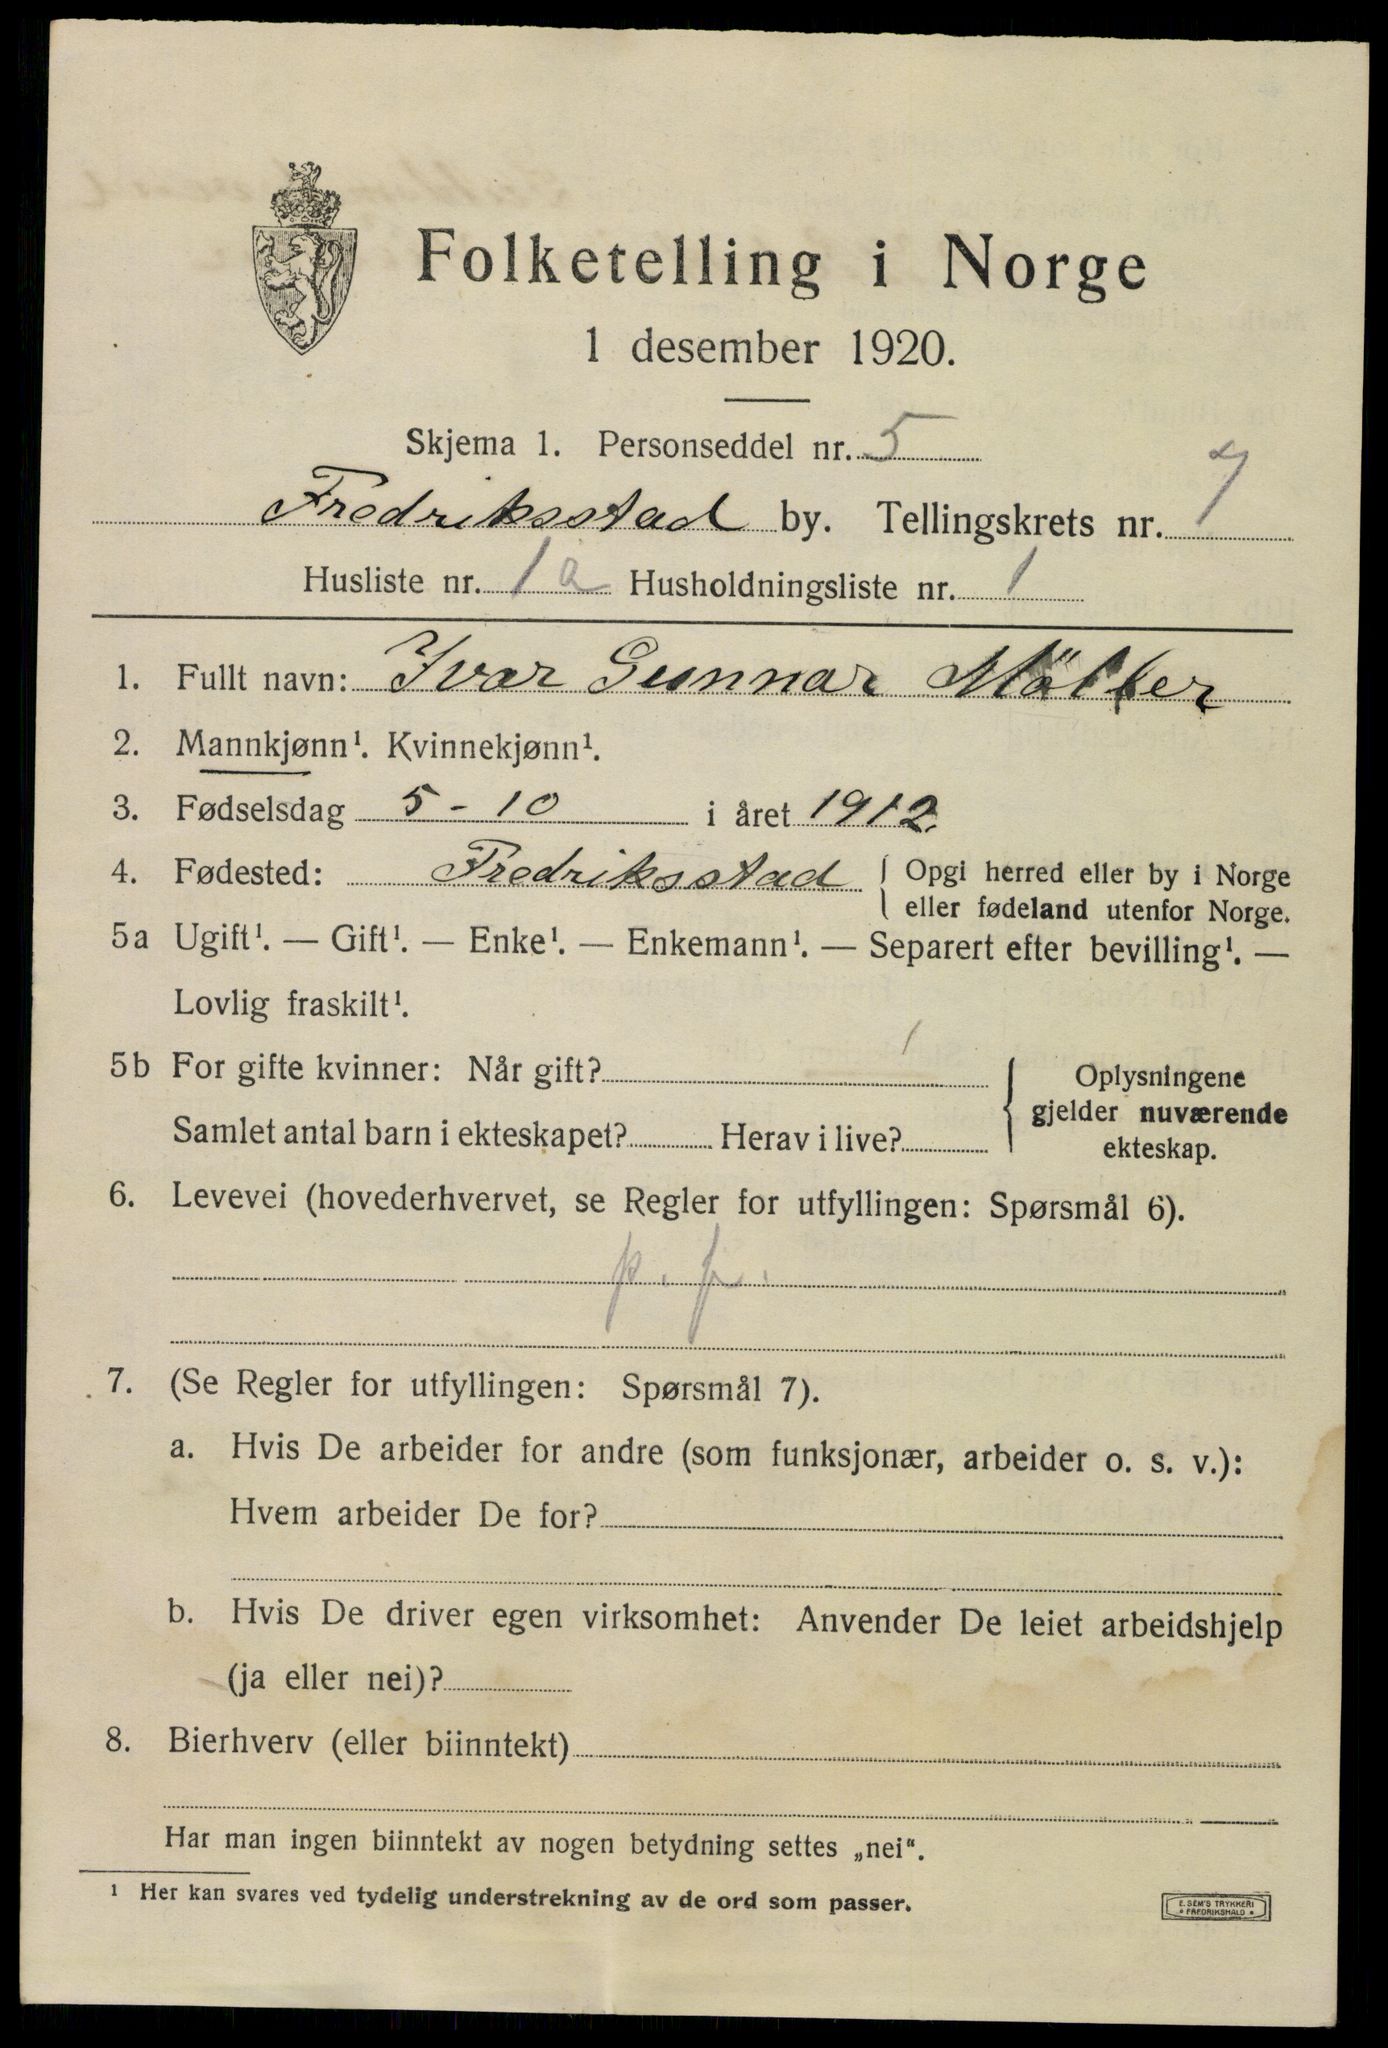 Folketelling i Norge
1 desember 1920.
Skjema 1. Personseddel nr. 5
Fredriksstad by. Tellingskrets nr. 7
Husliste nr. 1a Husholdningsliste nr. 1
1. Fullt navn: Ivar Gunnar Möller
2. Mannkjønn¹. Kvinnekjønn¹.
3. Fødselsdag 5-10 i året 1912.
4. Fødested: Fredriksstad { Opgi herred eller by i Norge
eller fødeland utenfor Norge.
5a Ugift¹. — Gift¹. — Enke¹. — Enkemann¹. — Separert efter bevilling¹. —
Lovlig fraskilt¹.
5b For gifte kvinner: Når gift?
Samlet antal barn i ekteskapet? Herav i live?
{ Oplysningene
gjelder nuværende
ekteskap.
6. Levevei (hovederhvervet, se Regler for utfyllingen: Spørsmål 6).
p. f.
7. (Se Regler for utfyllingen: Spørsmål 7).
a. Hvis De arbeider for andre (som funksjonær, arbeider o. s. v.):
Hvem arbeider De for?
b. Hvis De driver egen virksomhet: Anvender De leiet arbeidshjelp
(ja eller nei)?
8. Bierhverv (eller biinntekt)
Har man ingen biinntekt av nogen betydning settes „nei“.
¹ Her kan svares ved tydelig understrekning av de ord som passer.
E. SEM'S TRYKKERI
FREDRIKSHALD